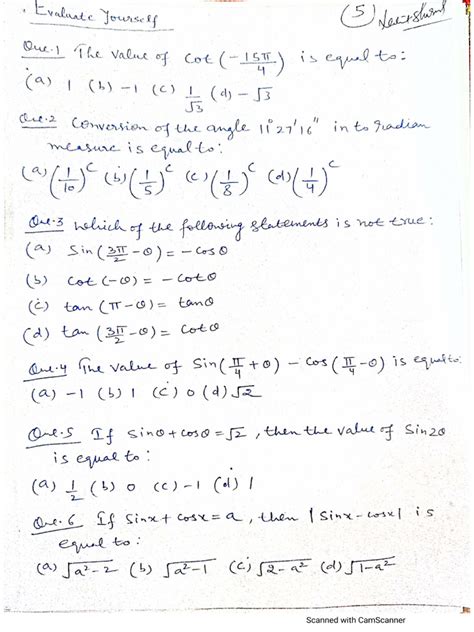 Evaluate Yourself
5
Que.1 The value of cot(-15π/4) is equal to:
(a) 1 (b) -1 (c) 1/√3 (d) -√3
Que.2 Conversion of the angle 11°27'16" in to radian
measure is equal to:
(a) (1/10)^c (b) (1/5)^c (c) (1/8)^c (d) (1/4)^c
Que.3 which of the following statements is not true:
(a) Sin(3π/2 - θ) = -cosθ
(b) cot(-θ) = -cotθ
(c) tan(π-θ) = tanθ
(d) tan(3π/2 - θ) = cotθ
Que.4 The value of Sin(π/4 + θ) - cos(π/4 - θ) is equal to:
(a) -1 (b) 1 (c) 0 (d) √2
Que.5 If sinθ + cosθ = √2, then the value of Sin2θ
is equal to:
(a) 1/2 (b) 0 (c) -1 (d) 1
Que.6 If Sinx + cosx = a, then |Sinx - cosx| is
equal to:
(a) √(a²-2) (b) √(a²-1) (c) √(2-a²) (d) √(1-a²)
Scanned with CamScanner